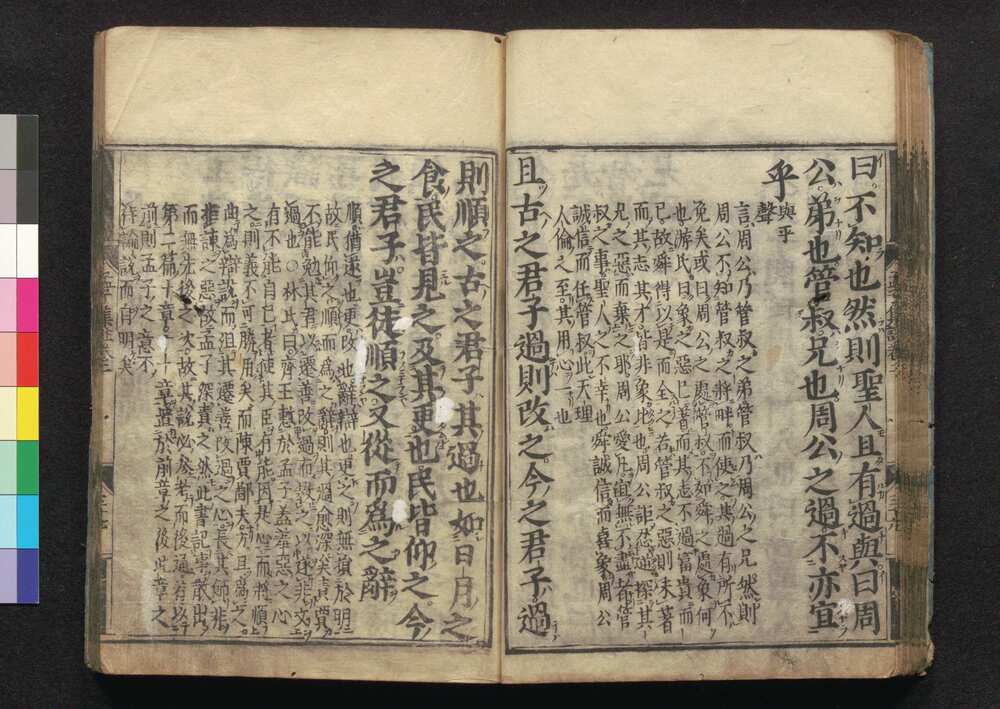 曰不知也然則聖人且有過與曰周
公弟也管叔兄也周公之過不亦宜
乎
與平
聲
言周公乃管叔之弟管叔乃周公之兄然則
周公不知管叔之將畔而使之其過有所不
免矣或曰周公之處管叔不如舜之處象何
也游氏曰象之惡已著而其志不過富貴而
已故舜得以是而全之若管叔之惡則未著
而其志其才皆非象比也周公詎忍逆探其
兄之惡而棄之耶周公愛兄宜無不盡者管
叔之事聖人之不幸也舜誠信而喜象周公
誠信而任管叔此天理
人倫之至其用心一也
且古之君子過則改之今之君子過
則順之古之君子其過也如日月之
食民皆見之及其更也民皆仰之今
之君子豈徒順之又從而為之辭
順猶遂也更改也辭辯也更之則無損於明
故民仰之順而為之辭則其過愈深矣責賈
不能勉其君以遷善改過而教之以遂非文
過也○林氏曰齊王慙於孟子蓋羞惡之心
有不能自已者使其臣有能因是心而將順
之則義不可勝用矣而陳賈鄙夫方且為之
曲為辯說而沮其遷善改過之心長其飾非
拒諫之惡故孟子深責之然此書記事散出
而無先後之次故其說必參考而後通若以
第二篇十章十一章置於前章之後此章之
前則孟子之意不
待論說而自明矣